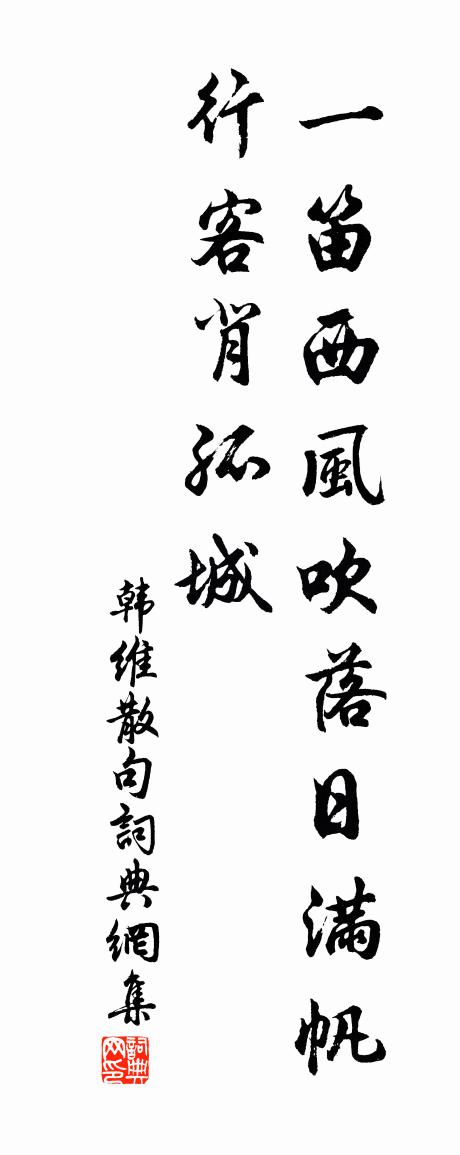 一笛西風吹落日滿帆
行客背孤城
韩維散句詞典網集
詞典网印